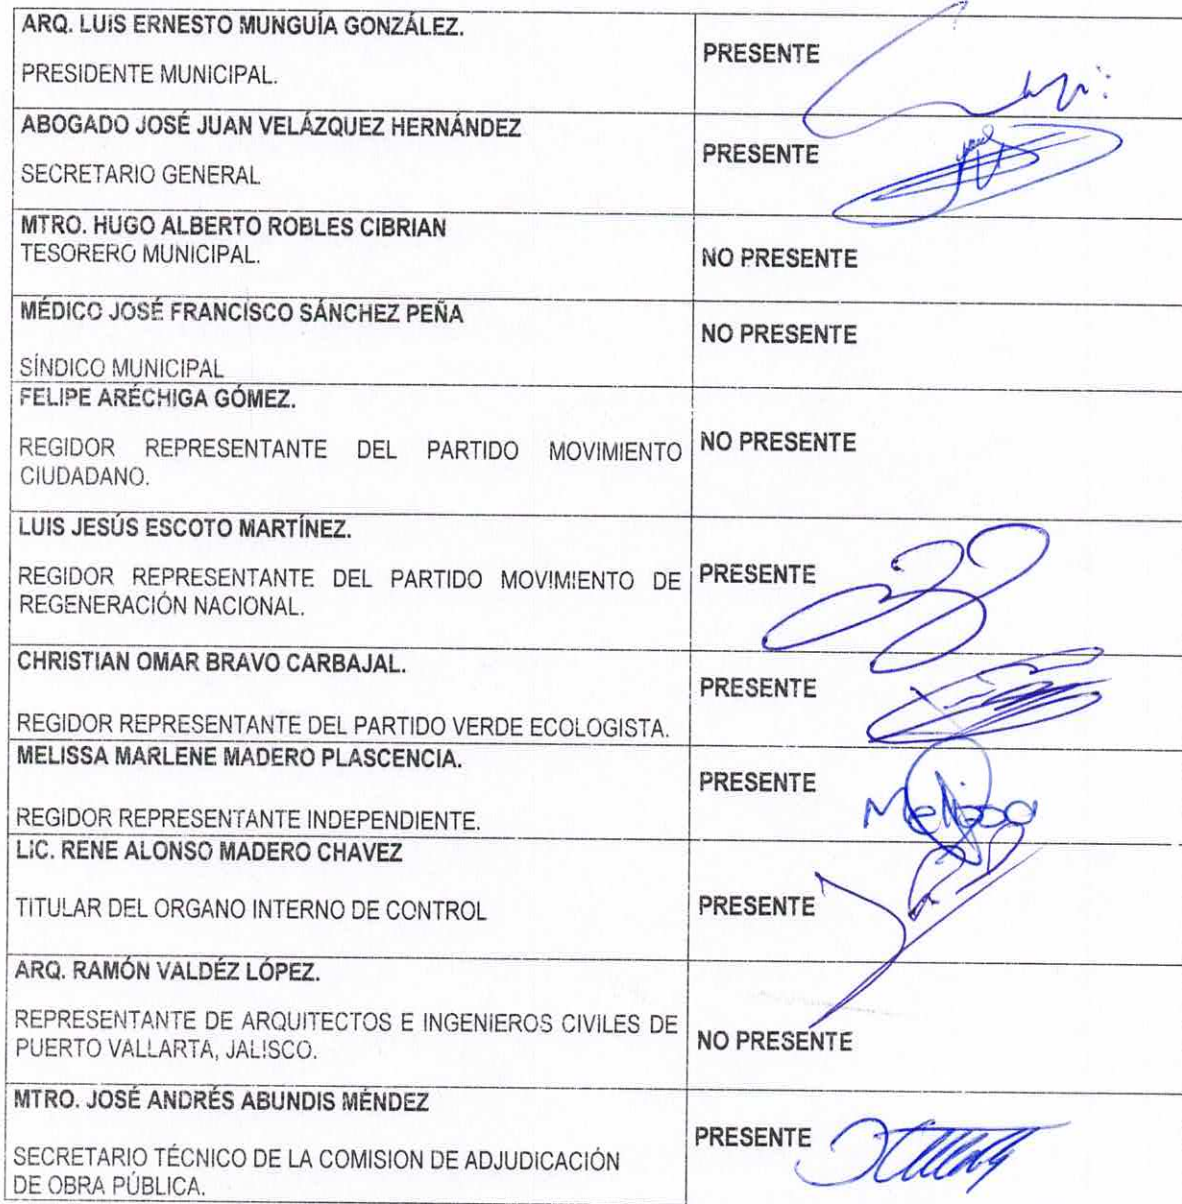 ARQ. LUIS ERNESTO MUNGUÍA GONZÁLEZ.
PRESIDENTE MUNICIPAL.
PRESENTE
ABOGADO JOSÉ JUAN VELÁZQUEZ HERNÁNDEZ
SECRETARIO GENERAL
PRESENTE
MTRO. HUGO ALBERTO ROBLES CIBRIAN
TESORERO MUNICIPAL.
NO PRESENTE
MÉDICO JOSÉ FRANCISCO SÁNCHEZ PEÑA
SÍNDICO MUNICIPAL
NO PRESENTE
FELIPE ARÉCHIGA GÓMEZ.
REGIDOR REPRESENTANTE DEL PARTIDO MOVIMIENTO
CIUDADANO.
NO PRESENTE
LUIS JESÚS ESCOTO MARTÍNEZ.
REGIDOR REPRESENTANTE DEL PARTIDO MOVIMIENTO DE
REGENERACIÓN NACIONAL.
PRESENTE
CHRISTIAN OMAR BRAVO CARBAJAL.
REGIDOR REPRESENTANTE DEL PARTIDO VERDE ECOLOGISTA.
PRESENTE
MELISSA MARLENE MADERO PLASCENCIA.
REGIDOR REPRESENTANTE INDEPENDIENTE.
PRESENTE
Melissa
LIC. RENE ALONSO MADERO CHAVEZ
TITULAR DEL ORGANO INTERNO DE CONTROL
PRESENTE
ARQ. RAMÓN VALDÉZ LÓPEZ.
REPRESENTANTE DE ARQUITECTOS E INGENIEROS CIVILES DE
PUERTO VALLARTA, JALISCO.
NO PRESENTE
MTRO. JOSÉ ANDRÉS ABUNDIS MÉNDEZ
SECRETARIO TÉCNICO DE LA COMISION DE ADJUDICACIÓN
DE OBRA PÚBLICA.
PRESENTE